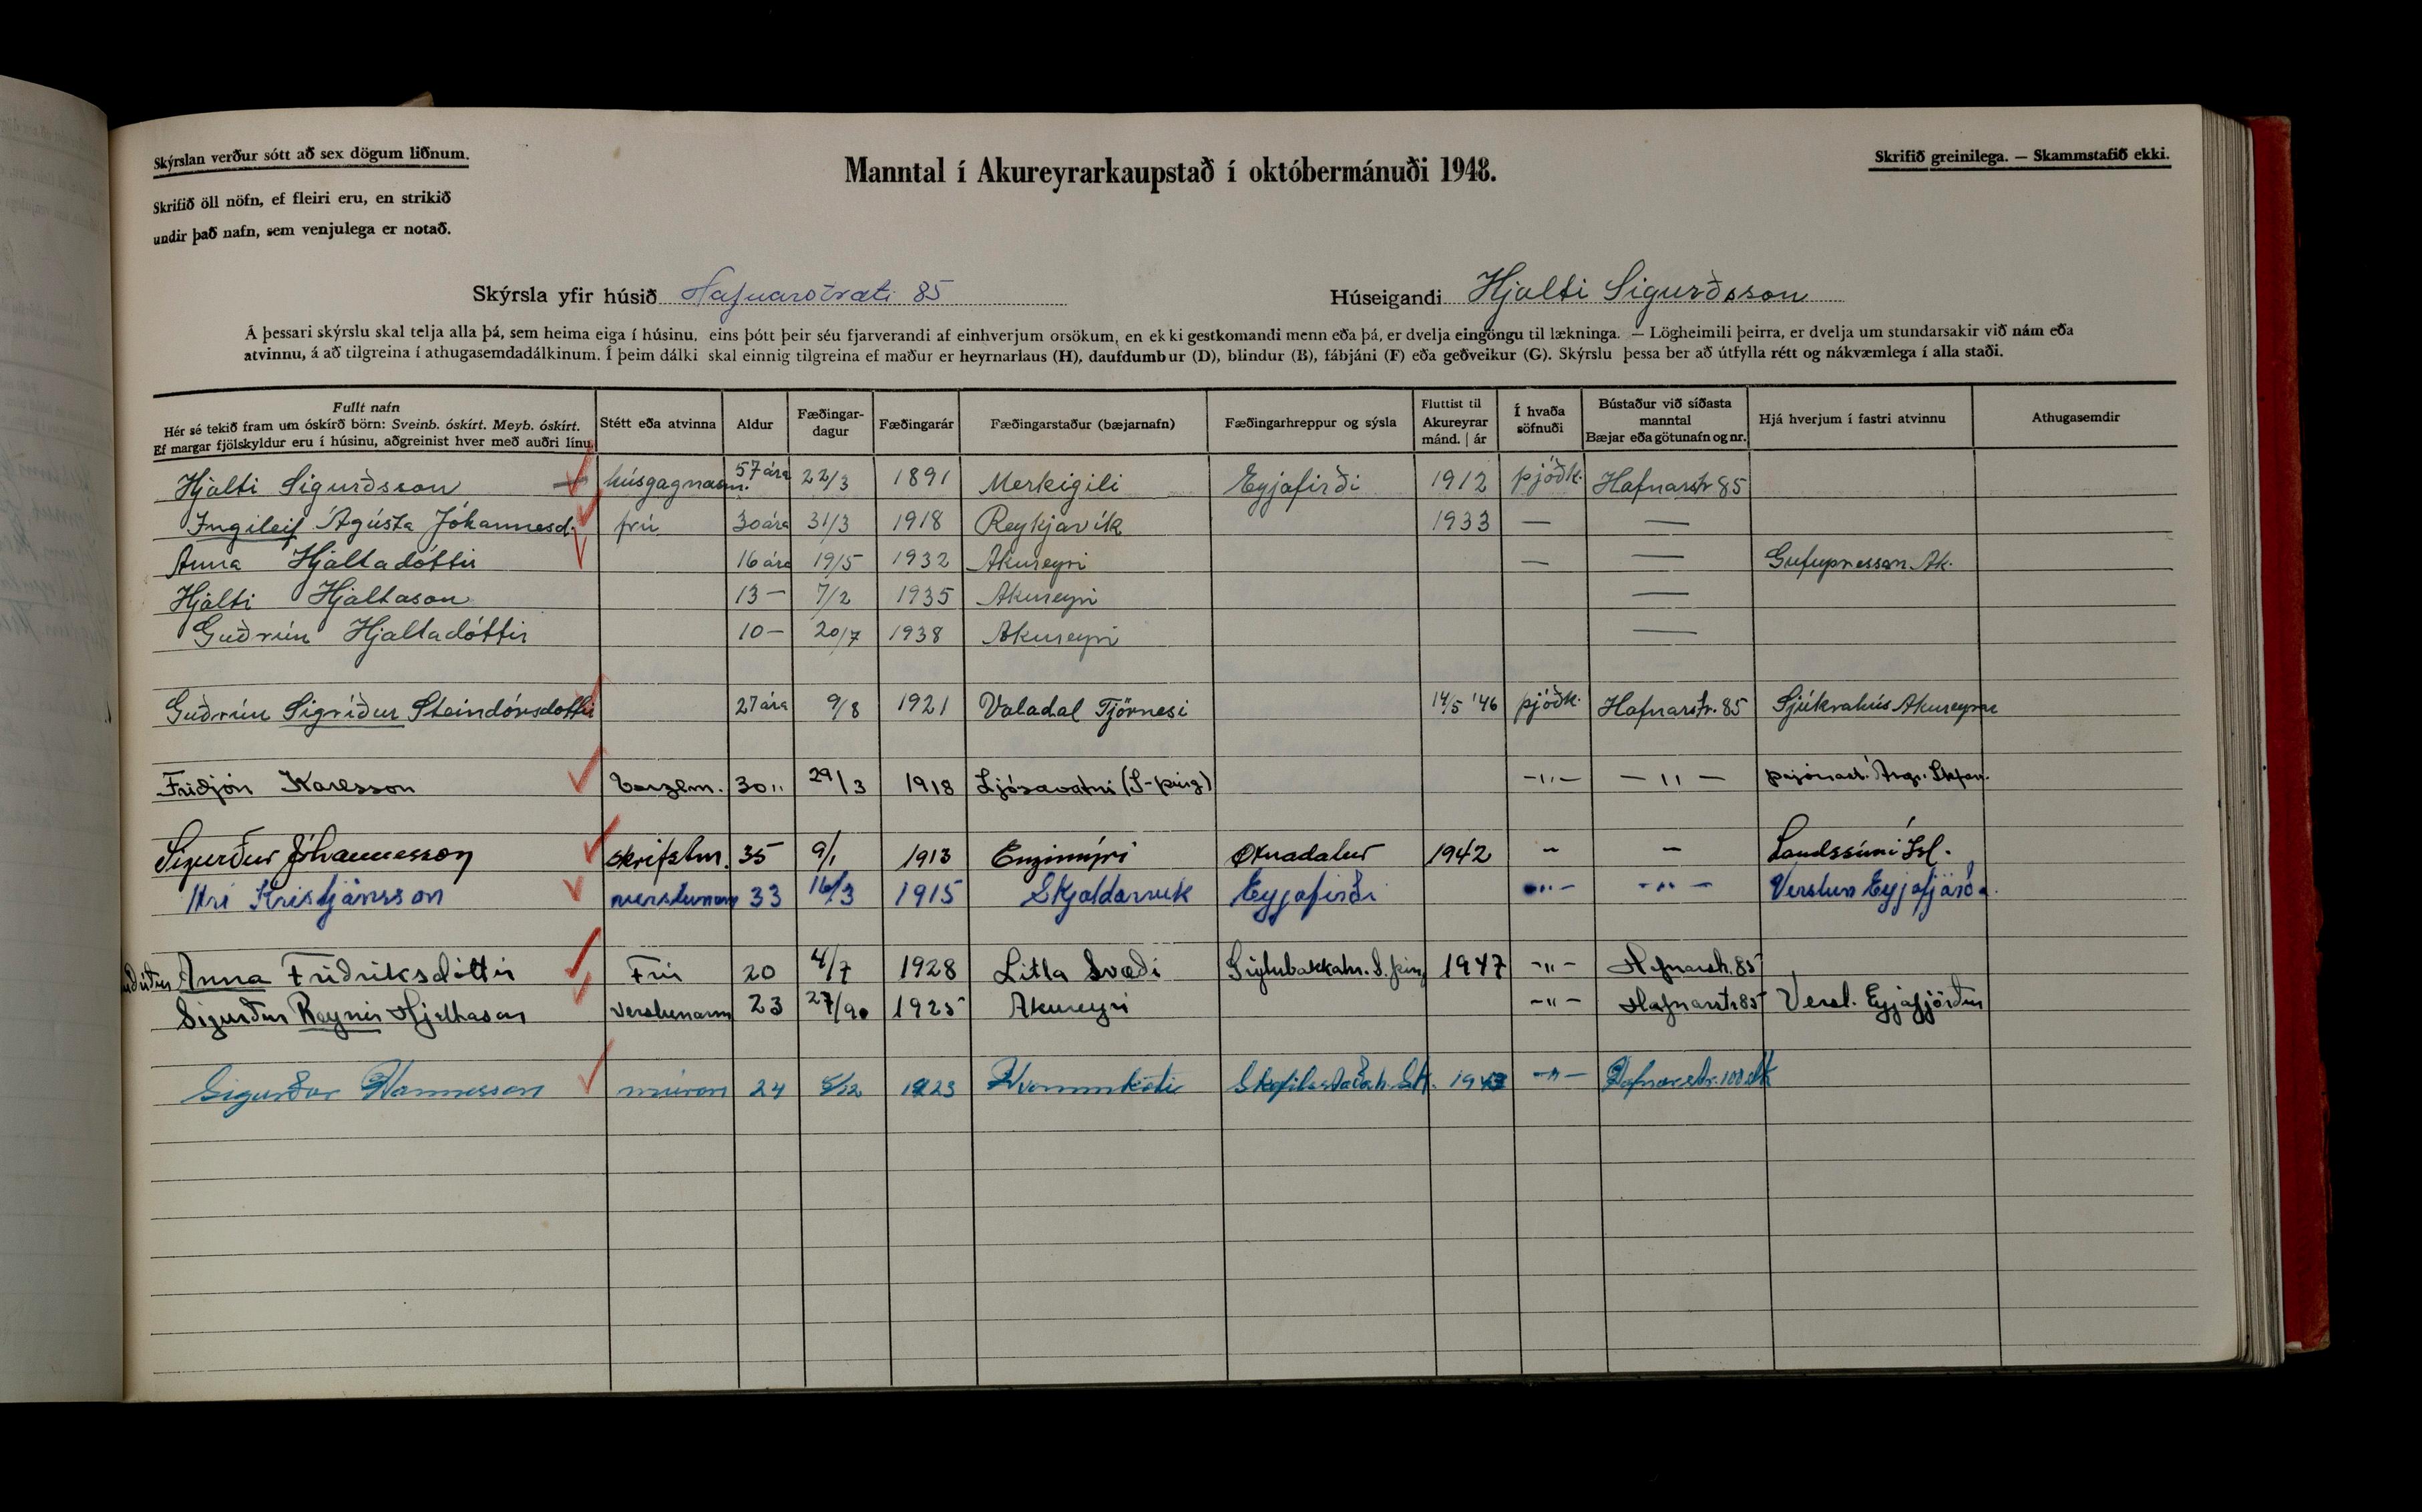 Skýrslan verður sótt að sex dögum liðnum.
Skrifið öll nöfn, ef fleiri eru, en strikið
undir það nafn, sem venjulega er notað.
Manntal í Akureyrarkaupstað í októbermánuði 1948.
Skrifið greinilega. — Skammstafið ekki.
Skýrsla yfir húsið Hafnarstræti 85
Húseigandi Hjalti Sigurðsson
Á þessari skýrslu skal telja alla þá, sem heima eiga í húsinu, eins þótt þeir séu fjarverandi af einhverjum orsökum, en ekki gestkomandi menn eða þá, er dvelja eingöngu til lækninga. — Lögheimili þeirra, er dvelja um stundarsakir við nám eða
atvinnu, á að tilgreina í athugasemdadálkinum. Í þeim dálki skal einnig tilgreina ef maður er heyrnarlaus (H), daufdumbur (D), blindur (B), fábjáni (F) eða geðveikur (G). Skýrslu þessa ber að útfylla rétt og nákvæmlega í alla staði.
Fullt nafn
Hér sé tekið fram um óskírð börn: Sveinb. óskírt. Meyb. óskírt.
Ef margar fjölskyldur eru í húsinu, aðgreinist hver með auðri línu.
Stétt eða atvinna
Aldur
Fæðingar-
dagur
Fæðingarár
Fæðingarstaður (bæjarnafn)
Fæðingarhreppur og sýsla
Fluttist til
Akureyrar
mánd. | ár
Í hvaða
söfnuði
Bústaður við síðasta
manntal
Bæjar eða götunafn og nr.
Hjá hverjum í fastri atvinnu
Athugasemdir
Hjalti Sigurðsson húsgagnasm. 57 ára 22/3 1891 Merkigili Eyjafirði 1912 þjóðk. Hafnarstr 85
Ingileif Ágústa Jóhannesd. frú 30 ára 31/3 1918 Reykjavík 1933 — —
Anna Hjaltadóttir 16 ára 19/5 1932 Akureyri — — Gufupressan Ak.
Hjalti Hjaltason 13 — 7/2 1935 Akureyri —
Guðrún Hjaltadóttir 10 — 20/7 1938 Akureyri —
Guðrún Sigríður Steindórsdóttir 27 ára 9/8 1921 Valadal Tjörnesi 14/5 '46 þjóðk. Hafnarstr. 85 Sjúkrahús Akureyrar
Friðjón Karlsson Verzlm. 30 " 29/3 1918 Ljósavatni (S-þing) -"- -"-
Sigurður Jóhannesson skrifstm. 35 9/1 1913 Engimýri Öxnadalur 1942 - - Landssími Ísl.
Ari Kristjánsson verslunarm 33 16/3 1915 Skjaldarvík Eyjafirði -"- -"- Verslun Eyjafjörð
Anna Friðriksdóttir Frú 20 4/7 1928 Litla Svæði 1947 -"- Hafnarstr. 85
Sigurður Reynir Hjaltason Verslunarm 23 1925 Akureyri -"- Hafnarstr 85 Versl. Eyjafjörður
Sigurður Hannesson múrari 24 5/12 1923 -"- Hafnarstr. 100 Ak